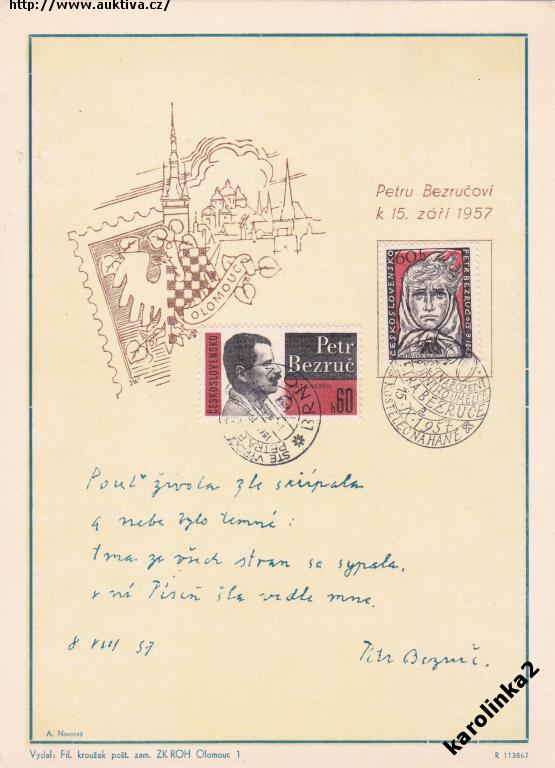 http://www.auktiva.cz/
Petru Bezručovi
k 15. září 1957
OLOMOUC
60h
ČESKOSLOVENSKO
PETR BEZRUČ
ČESKOSLOVENSKO
Petr
Bezruč
h60
BRNO
BEZRUČE
15.IX.1957
KOSTELEC NA HANÉ
Pouť života zle skřípala
a nebe bylo temné:
tma ze všech stran se sypala,
v ní Píseň šla vedle mne.
8 VIII 57
Petr Bezruč.
A. Novotný
Vydal: Fil. kroužek pošt. zam. ZK ROH Olomouc 1
R 113867
karolinka2